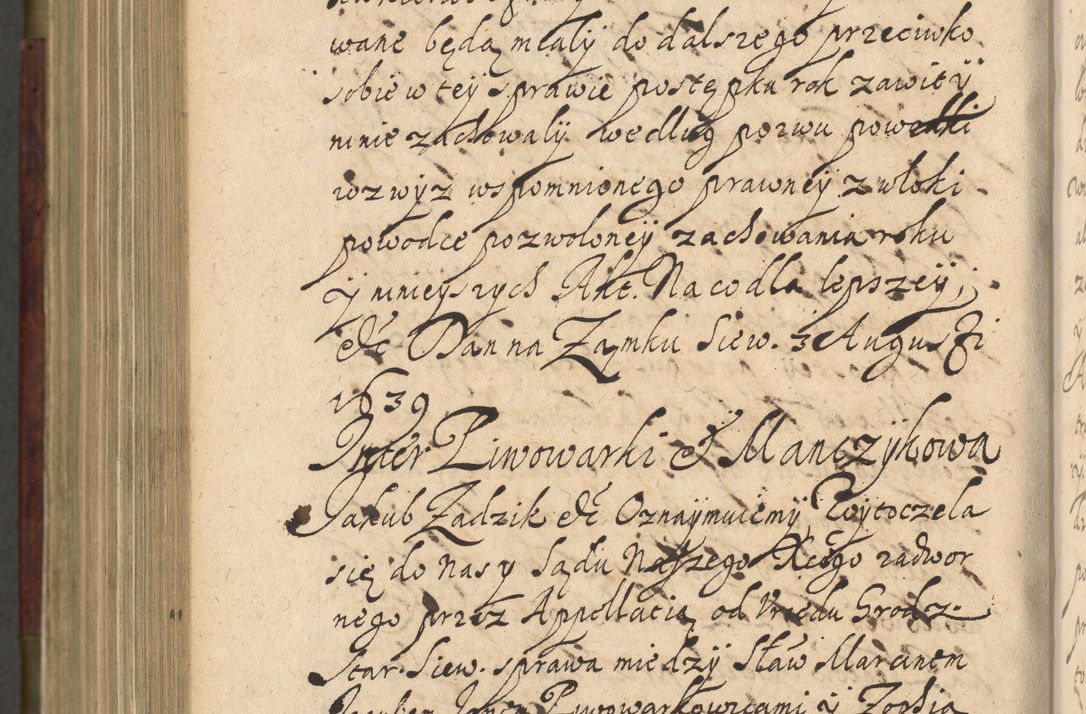 wane będą mialÿ do dalszego przeciwko
sobie w teÿ sprawie postępku rok zawitÿ
mnie zachowalÿ według pozwu powodki
wzwyz wspomnionego prawneÿ zwłoki
powodce pozwoloneÿ zachowania roku
ÿ ninieÿszych Akt. Na co dla lepszeÿ,
etc Dan na Zamku Siew. 3 Augusti
1639
Inter Piwowarki et Manczÿkowa
Jakub Zadzik etc Oznaÿmuiemÿ, Iz wÿtoczela
się do nas y Sądu Naszego Xcego zadwor
nego przez Appellacią od Vrzędu Grodz.
Star. Siew. sprawa międzÿ Sław Marcinem
Piwowarkowicami ÿ Zophią